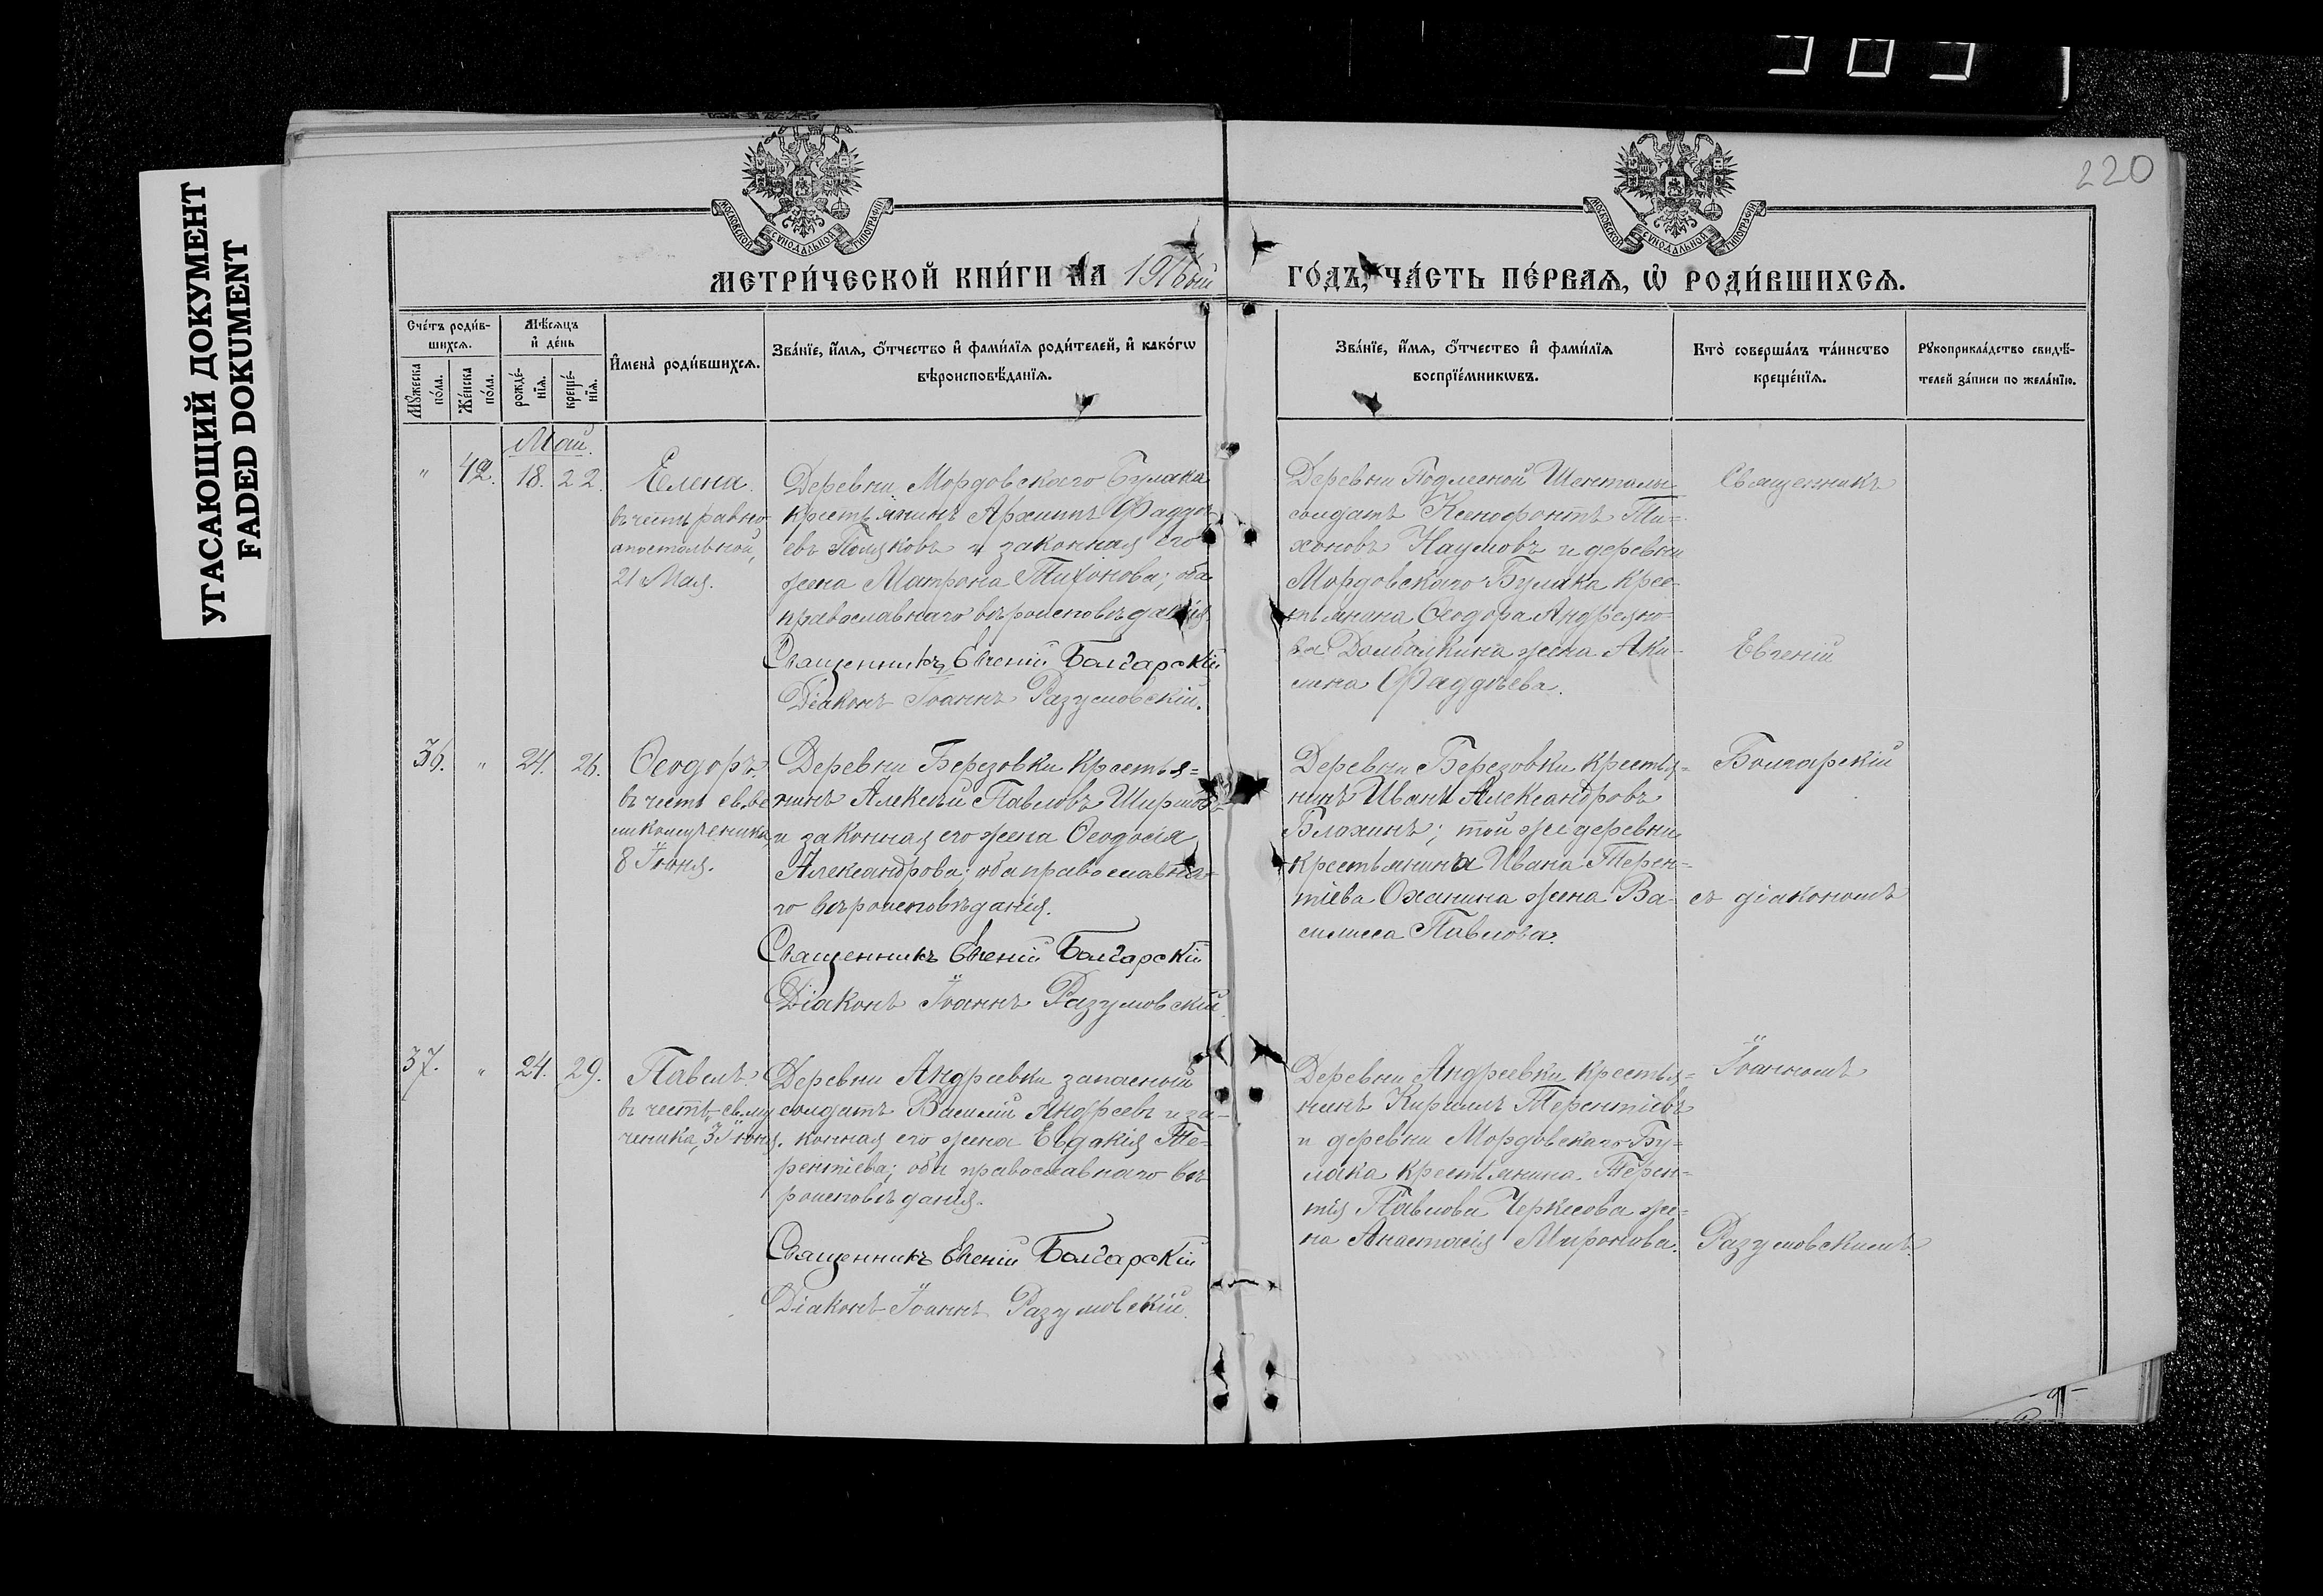 УГАСАЮЩИЙ ДОКУМЕНТ
FADED DOKUMENT
220
МОСКОВСКОЙ СѴНОДАЛЬНОЙ ТИПОГРАФІИ
МОСКОВСКОЙ СѴНОДАЛЬНОЙ ТИПОГРАФІИ
МЕТРИ́ЧЕСКОЙ КНИ́ГИ НА 1916ый
ГО́ДЪ, ЧА́СТЬ ПЕ́РВАѦ, Ѡ҆ РОДИ́ВШИХСѦ.
Сче́тъ роди́в-
шихсѧ.
Мꙋ́жеска по́ла.
Же́нска по́ла.
Мѣ́сѧцъ
и҆ де́нь
рожде́-
нїѧ.
креще́-
нїѧ.
И҆мена̀ роди́вшихсѧ.
Зва́нїе, и҆́мѧ, ѻ҆́тчество и҆ фами́лїѧ роди́телей, и҆ како́гѡ
вѣроисповѣ́данїѧ.
Зва́нїе, и҆́мѧ, ѻ҆́тчество и҆ фами́лїѧ
воспрїе́мникѡвъ.
Кто̀ соверша́лъ та́инство
креще́нїѧ.
Рꙋкоприкла́дство свидѣ́-
телей за́писи по жела́нїю.
Май.
" 42. 18. 22.
Елена.
въ честь равно-
апостольной,
21 Мая.
Деревни Мордовскаго Булака
крестьянинъ Архиппъ Фаддѣ-
евъ Поляковъ и законная его
жена Матрона Тихонова; оба
православнаго вѣроисповѣданія.
Священникъ Евгеній Болгарскій
Діаконъ Іоаннъ Разумовскій.
Деревни Подлесной Шенталы
солдатъ Ксенофонтъ Ти=
хоновъ Наумовъ и деревни
Мордовскаго Булака крес-
тьянина Ѳеодора Андреяно-
ва жена Аки-
лина Фаддѣева.
Священникъ
Евгеній
36. " 24. 26.
Ѳеодоръ,
въ честь св. ве
ликомученика,
8 Іюня.
Деревни Березовки крестья=
нинъ Алексѣй Павловъ
и законная его жена Ѳеодосія
Александрова; оба православна=
го вѣроисповѣданія.
Священникъ Евгеній Болгарскій
Діаконъ Іоаннъ Разумовскій.
Деревни Березовки крестья=
нинъ Иванъ Александровъ
Блохинъ; той же деревни
крестьянина Ивана Терен=
тіева Оханина жена Ва-
силисса Павлова.
Болгарскій
съ діакономъ
37. " 24. 29.
Павелъ
въ честь св. му
ченика, 3 Іюня.
Деревни Андреевки запасный
солдатъ Василій Андреевъ и за-
конная его жена Евдокія Те-
рентіева; оба православнаго вѣ
роисповѣданія.
Священникъ Евгеній Болгарскій
Діаконъ Іоаннъ Разумовскій.
Деревни Андреевки крестья=
нинъ Кириллъ Терентіевъ
и деревни Мордовскаго Бу=
лака крестьянина Терен=
тія Павлова Черкасова же=
на Анастасія Миронова.
Іоанномъ
Разумовскимъ.